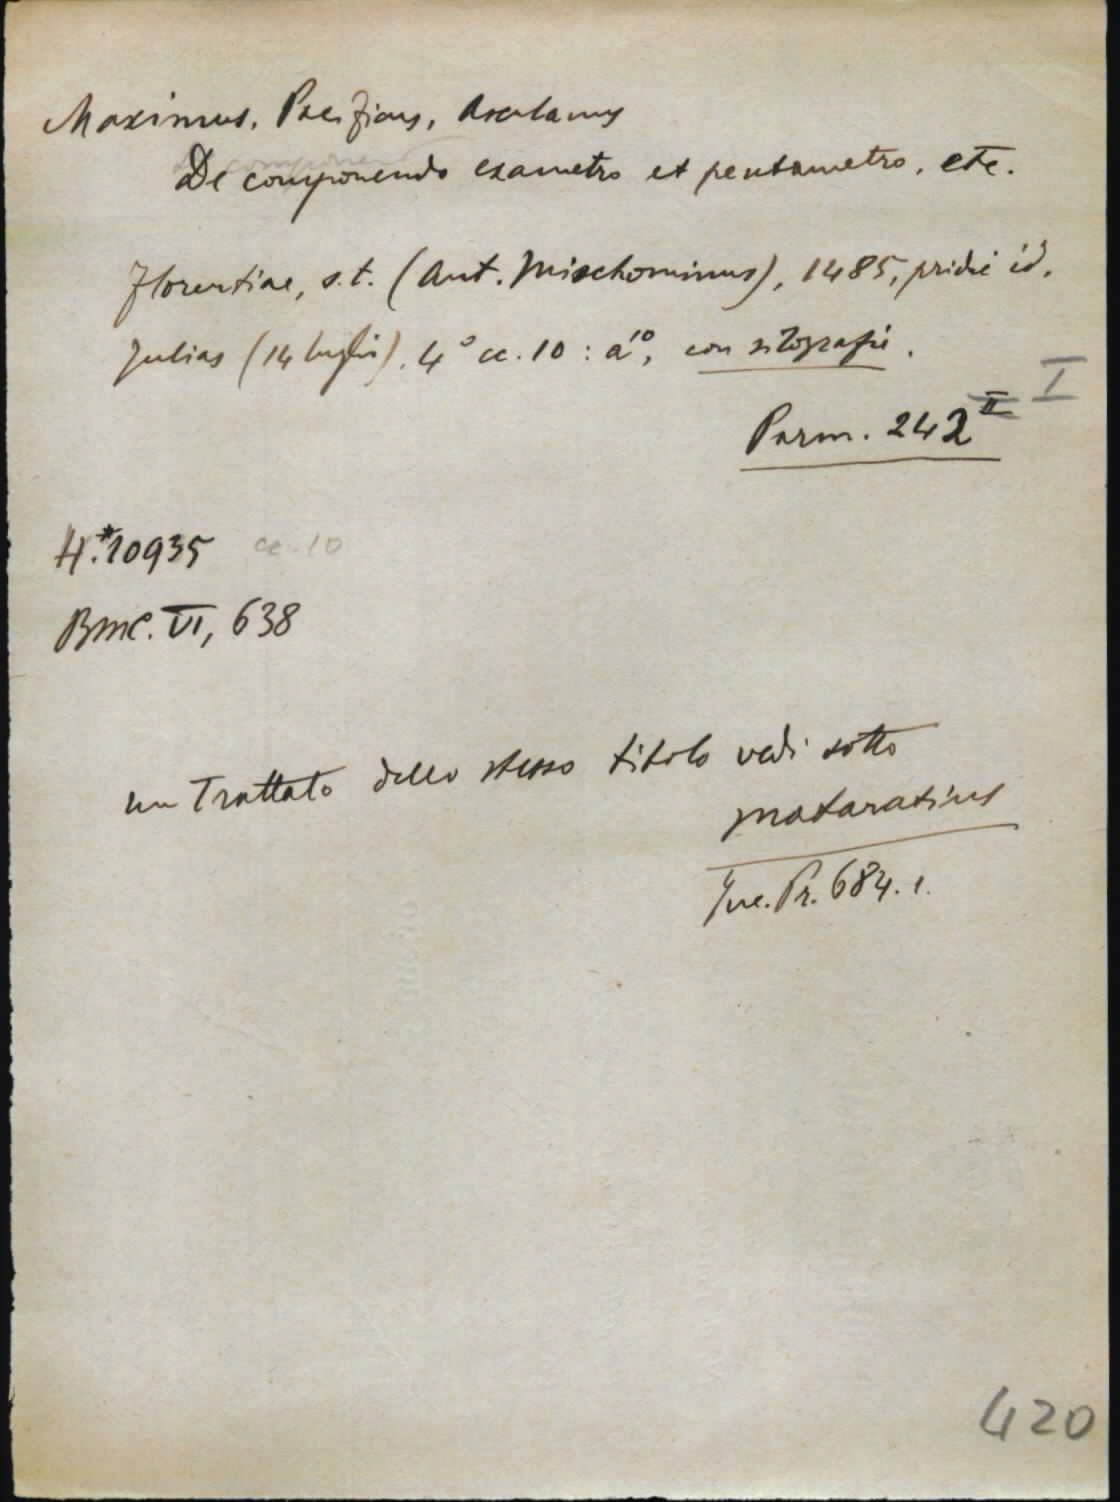 Maximus, Pacificus, Asculanus
De componendo exametro et pentametro, etc.
Florentiae, s.t. (Ant. Mischominus), 1485, pridie id.
Julias (14 luglio). 4° cc. 10 : a¹⁰, con silografie.
I
Parm. 242 II
H.*10935 cc. 10
BMC. VI, 638
un Trattato dello stesso titolo vedi sotto
Mataratius
Inc. Pr. 684. 1.
420